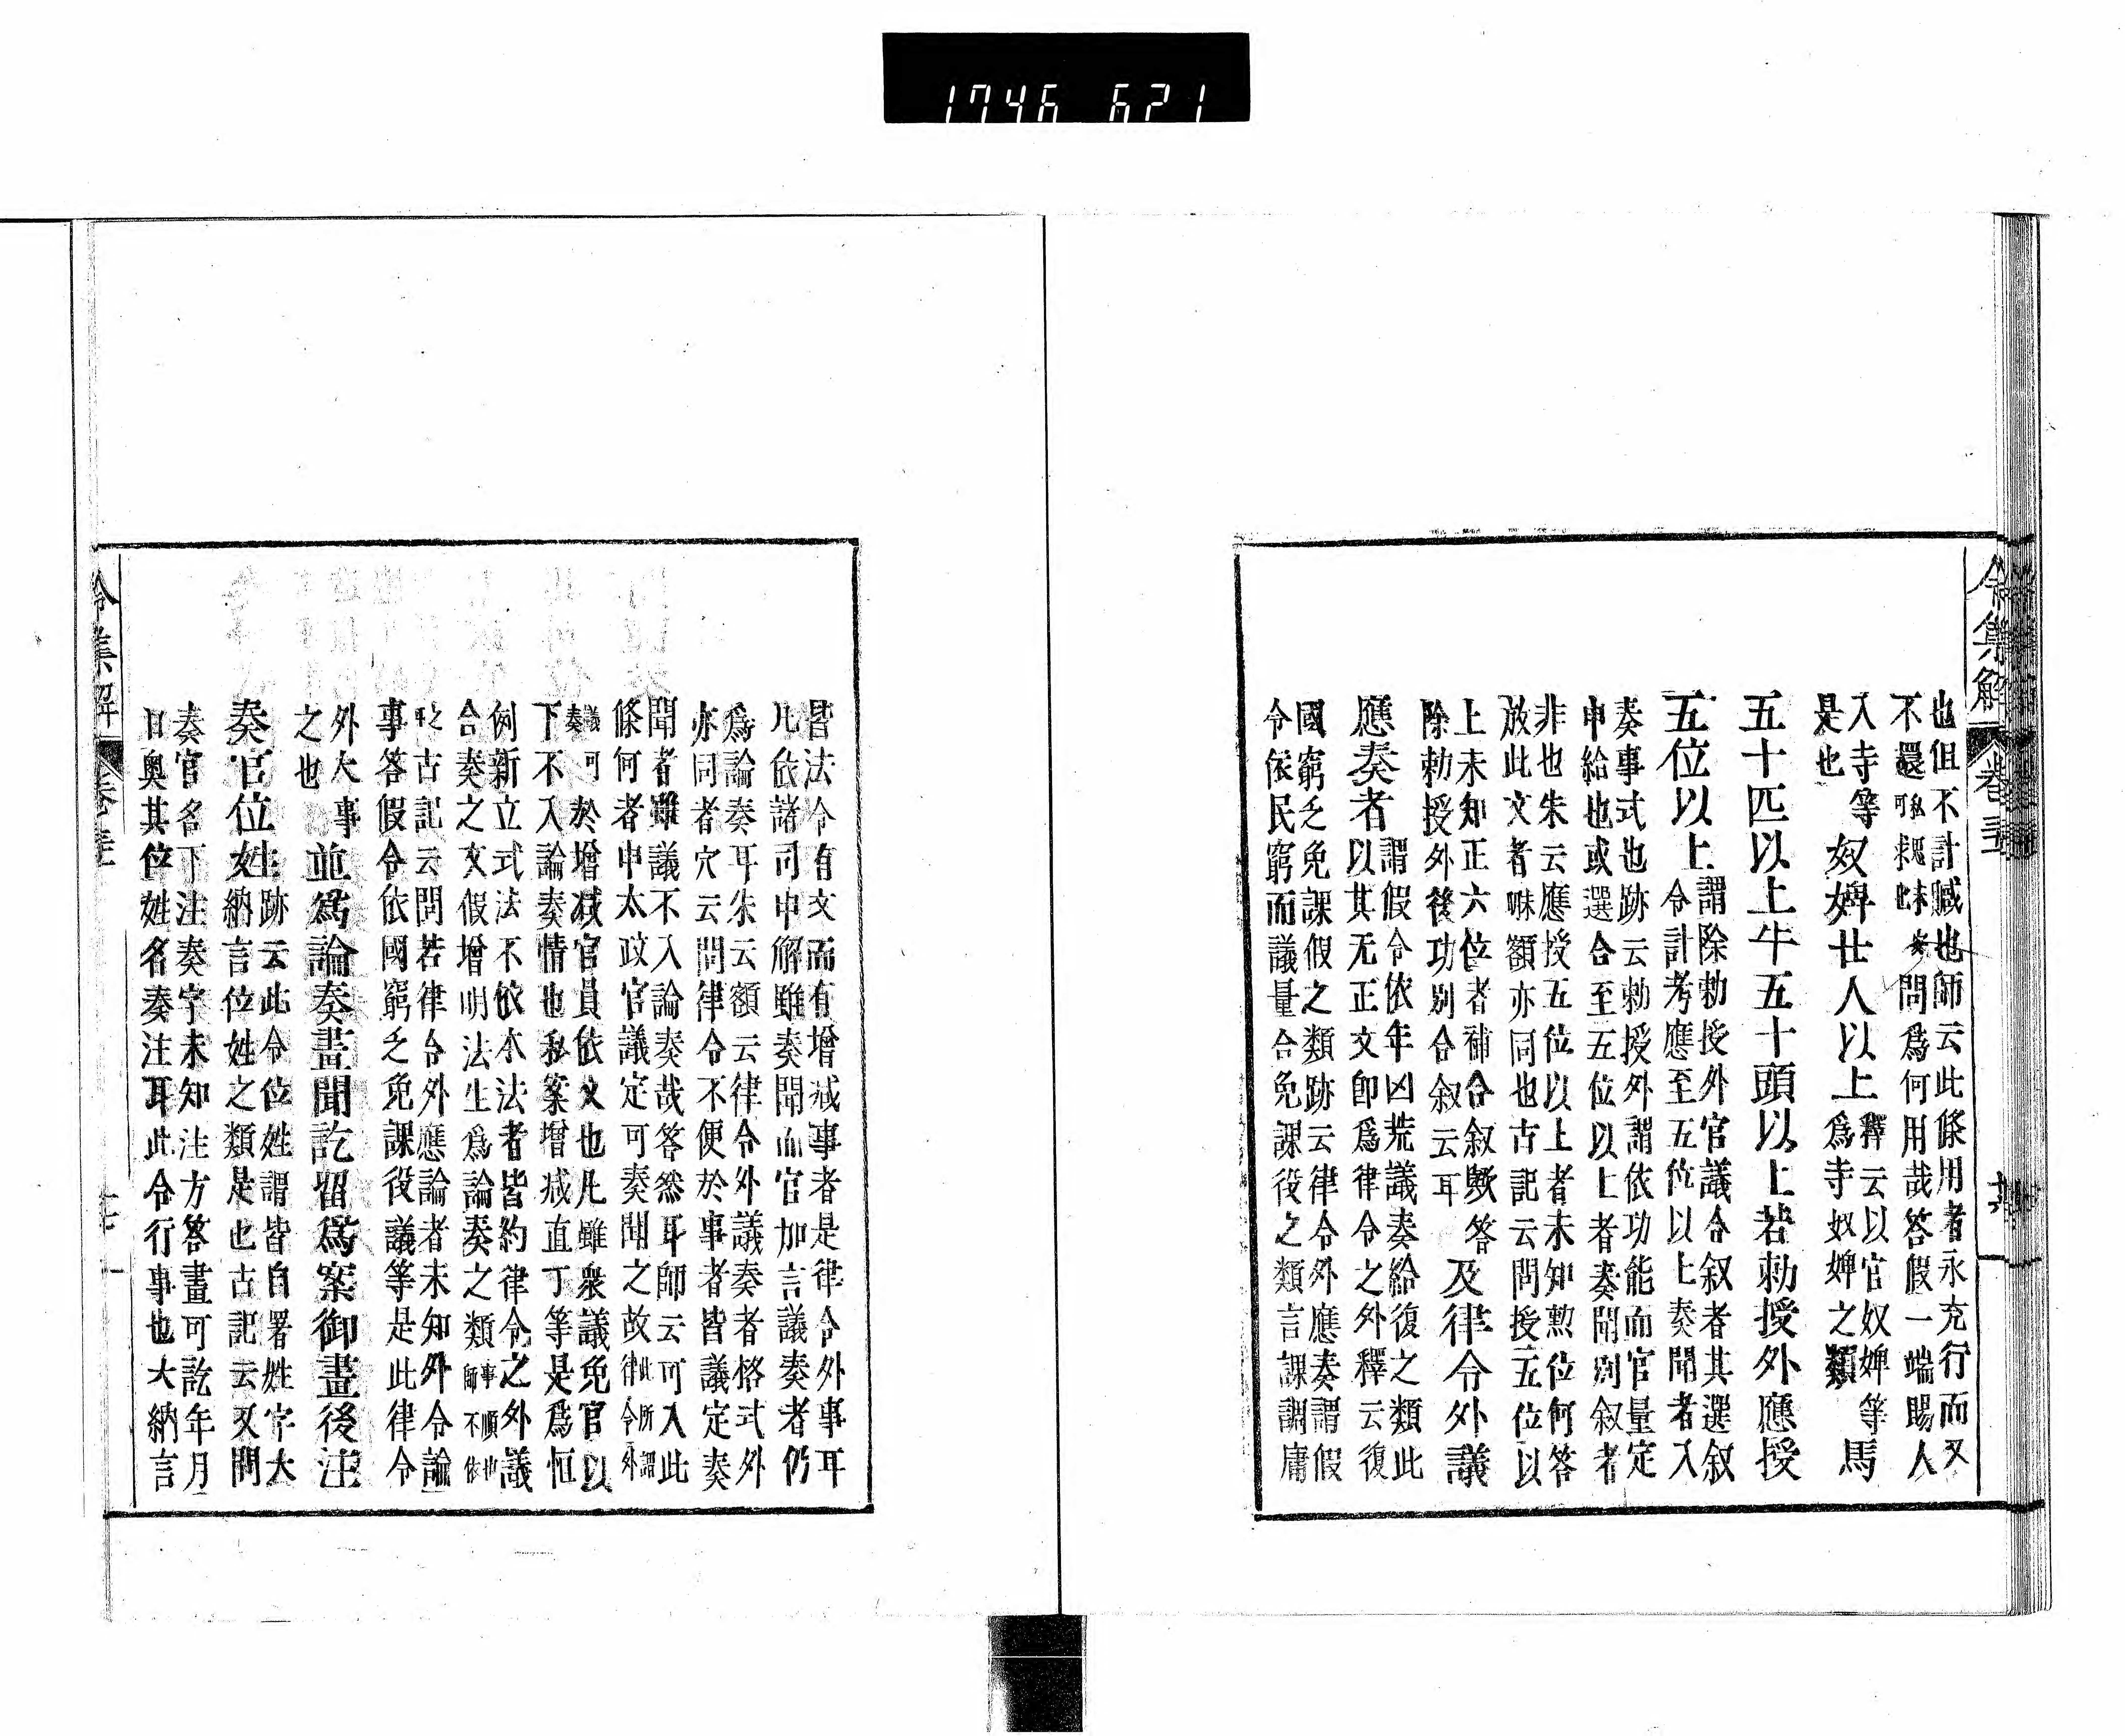 1746 621
令集解 卷三
也但不計贓也師云此條用者永充行而又
不還問爲何用用哉答假一端賜人
入寺等奴婢廿人以上釋云以官奴婢等馬
是也爲寺奴婢之類
五十匹以上牛五十頭以上若勅授外應授
五位以上謂除勅授外官議令叙者其選叙
令計考應至五位以上奏聞者入
奏事式也跡云勅授外謂依功能而官量定
申給也或選合至五位以上者奏聞別叙者
非也朱云應授五位以上者未知勲位何答
放此文者哧額亦同也古記云問授五位以
上未知正六位者補合叙歟答及律令外議
除勅授外後功別合叙云耳
應奏者謂假令依年凶荒議奏給復之類此
以其无正文卽爲律令之外釋云復
國窮乏免課假之類跡云律令外應奏謂假
令依民窮而議量合免課役之類言課調庸
皆法令有文而有增减事者是律令外事耳
凡依諸司申解雖奏聞而官加言議奏者仍
爲論奏耳朱云額云律令外議奏者格式外
亦同者穴云問律令不便於事者皆議定奏
聞者雖議不入論奏哉答然耳師云可入此
條何者申太政官議定可奏聞之故此所謂律令外
議奏可於增减官員依文也凡雖衆議免官以
下不入論奏情也私案增减直丁等是爲恒
例新立式法不依本法者皆約律令之外議
合奏之文假增明法生爲論奏之類事順也師不依
之古記云問若律令外應論者未知外令論
事答假令依國窮乏免課役議等是此律令
外大事並爲論奏畫聞訖留爲案御畫後注
之也
奏官位姓跡云此令位姓謂皆自署姓字大
納言位姓之類是也古記云又問
奏官名下注奏字未知注方答畫可訖年月
日奥其位姓名奏注耳此令行事也大納言
令集解 卷三